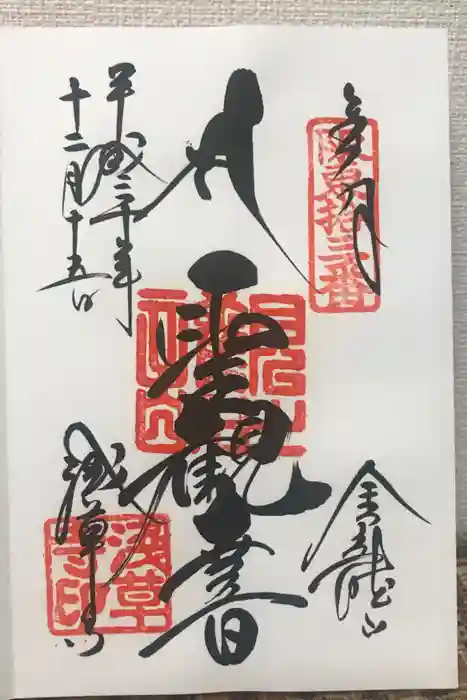 奉拝
坂東拾三番
金龍山
聖観世音
平成三十年
十二月十五日
浅草寺
浅草寺印